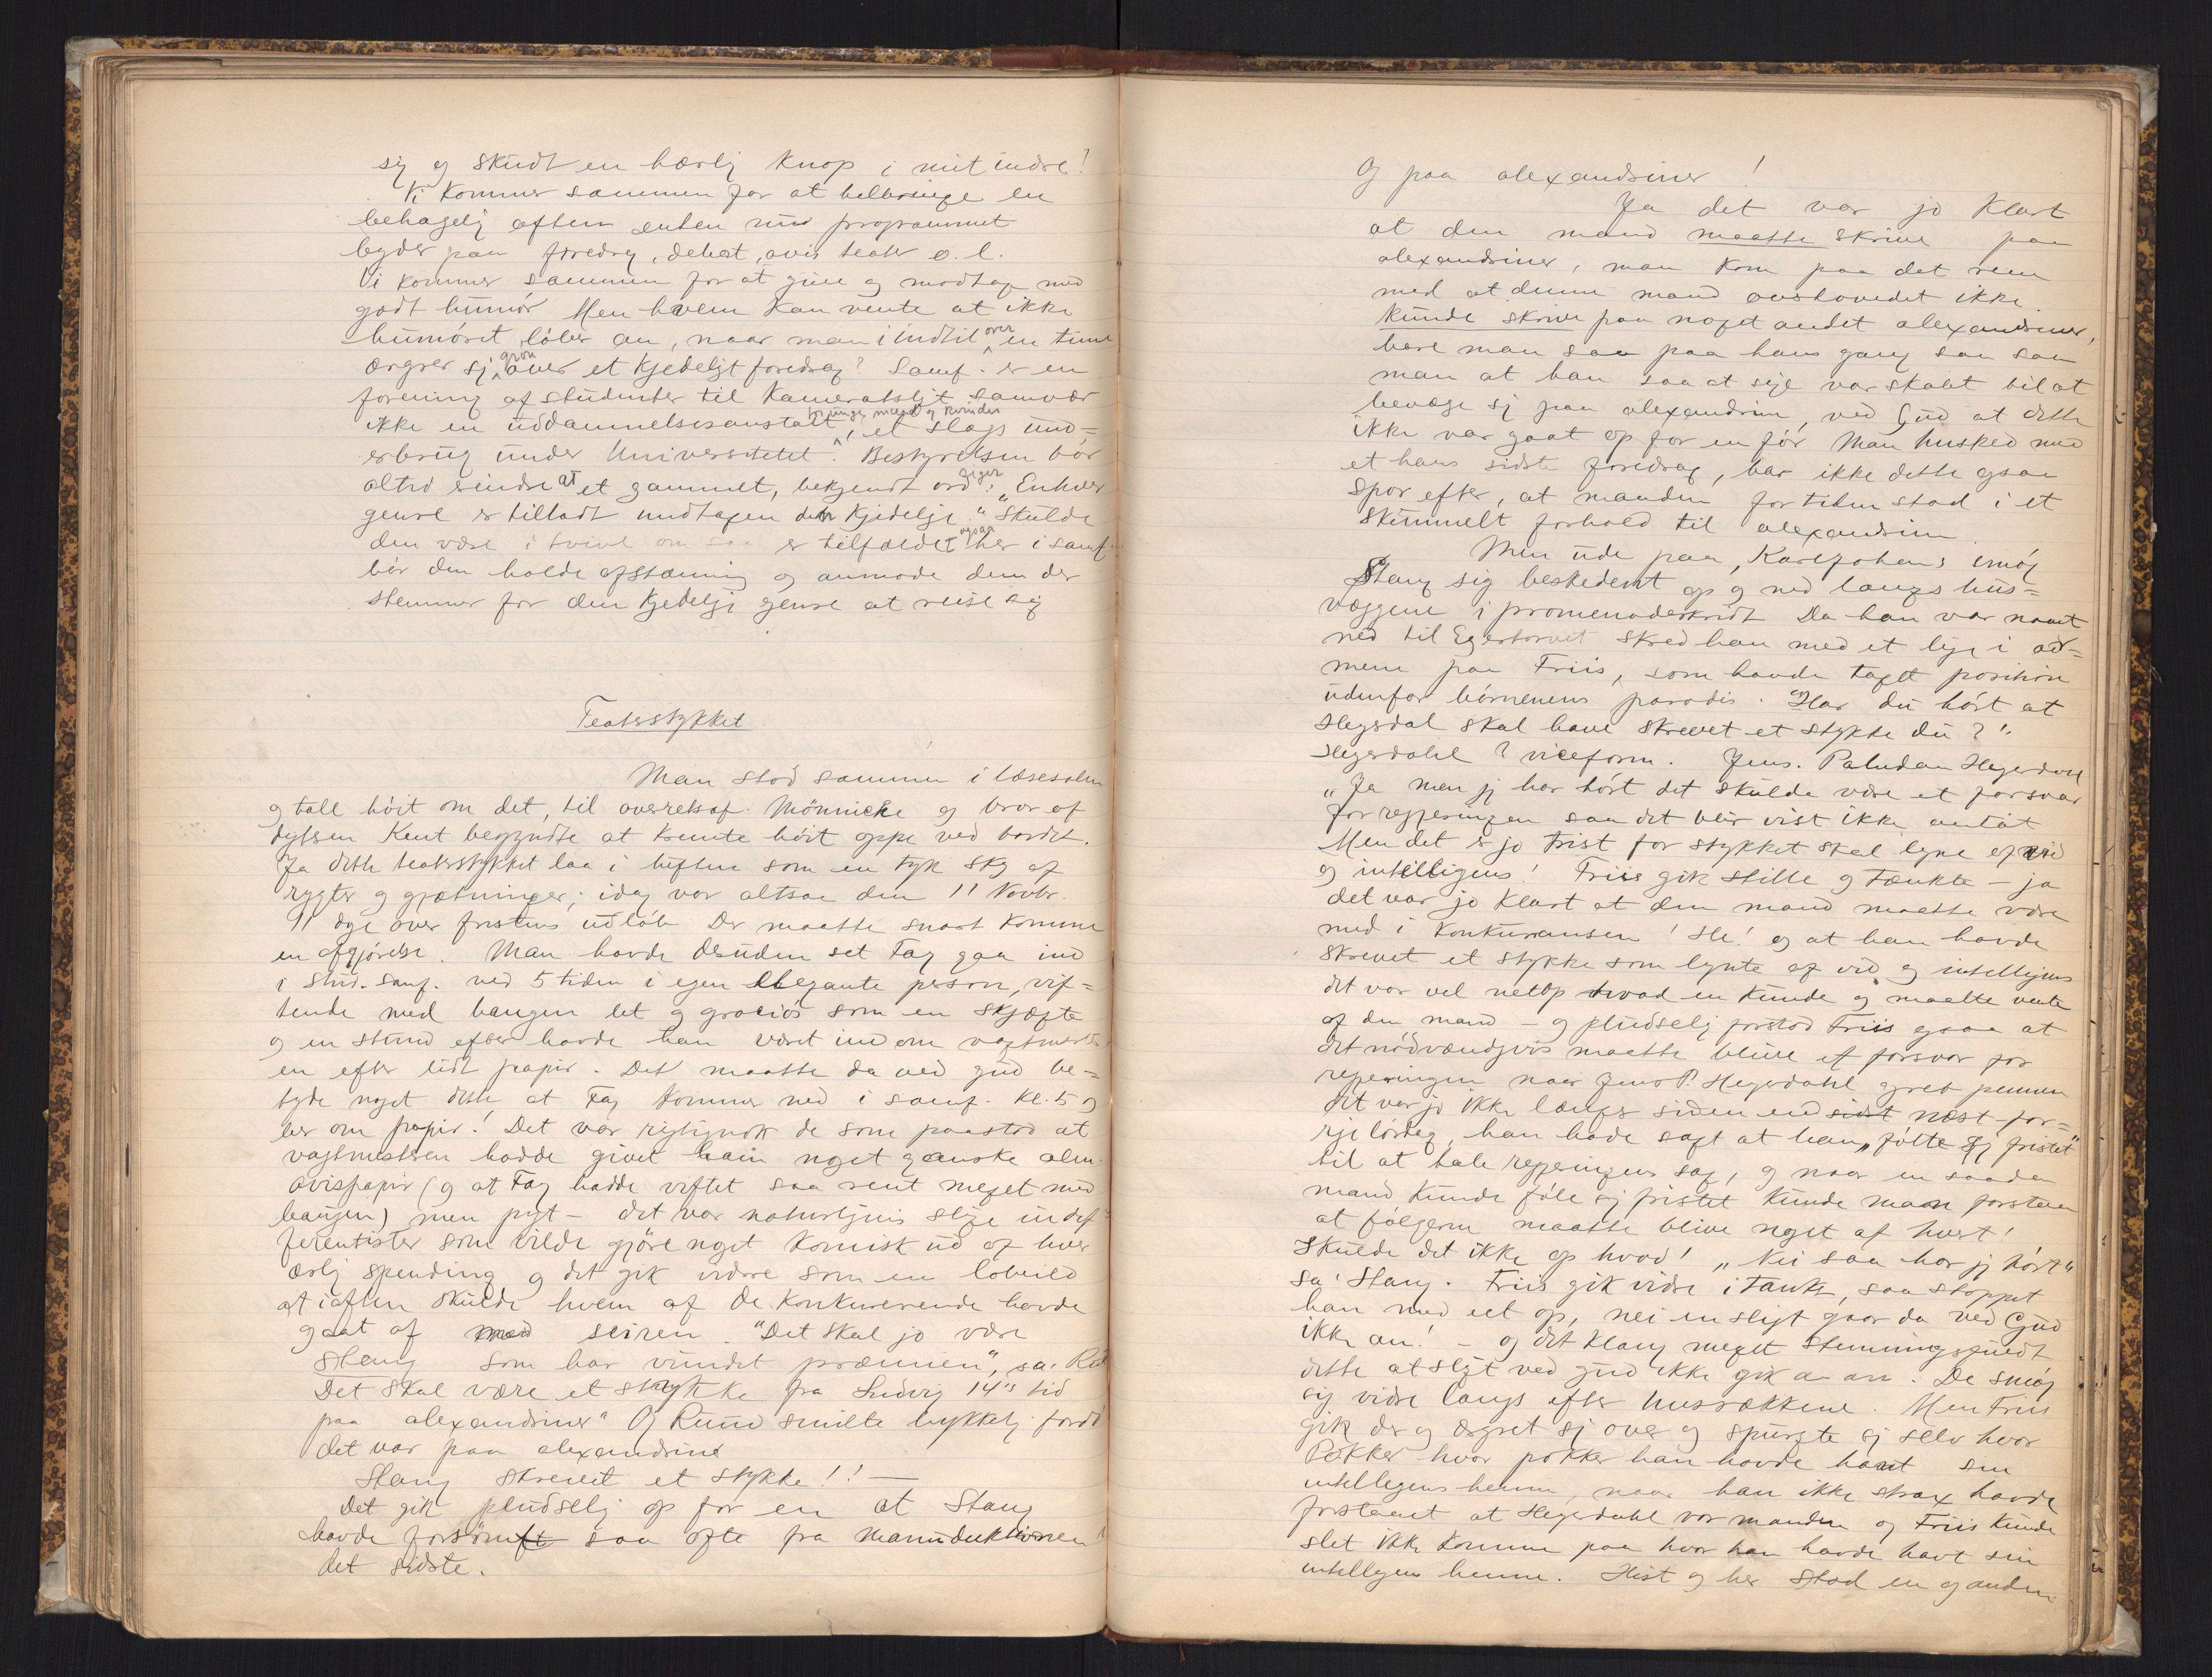 sig og skudt en herlig knop i mit indre!
Vi kommer sammen for at tilbringe en
behagelig aften enten nu programmet
byder paa foredrag, debat, avis teater o. l.
Vi kommer sammen for at give og modtage med
godt humør Men hvem kan vente at ikke
humøret løber an, naar man i indtil over en time
ærgrer sig grøn over et kjedeligt foredrag? Samf. er en
forening af studenter til kameratsligt samvær
ikke en uddannelsesanstalt for unge mænd og kvinder, et slags und=
erbrug under Universitetet. Bestyrelsen bør
altid erindre at et gammelt, bekjendt ord siger: "Enhver
genre er tilladt undtagen den kjedelige." Skulde
den være i tvivl om saa er tilfældet ogsaa her i samf.
bør den holde afstemning og anmode dem der
stemmer for den kjedelige genre at reise sig
Teaterstykket
Man stod sammen i læsesalen
og talte høit om det, til overretssaf. Mönniche og bror af
dydsen Kent begyndte at kremte høit oppe ved bordet.
Ja dette teaterstykket laa i luften som en tyk sky af
rygter og gjætninger; idag var altsaa den 11 Novbr.
11 dage over fristens udløb. Der maatte snart komme
en afgjørelse. Man havde desuden set Fag gaa ind
i Stud. Samf. ved 5 tiden i egen elegante person, vif=
tende med haugen let og graciøs som en skjæfte
og en stund efter havde han været inde om vagtmester=
en efter lidt papir. Det maatte da ved gud be=
tyde noget dette at Fag kommer ned i samf. kl. 5 og
ber om papir! Det var rigtignok de som paastod at
vagtmesteren hadde givet ham noget ganske alm.
avispapir (og at Fag hadde viftet saa rent meget med
haugen) men pyt - det var naturligvis slige indif=
ferentister som vilde gjøre noget komisk ud af hver
ærlig spending og det gik videre som en løbeild
at iaften skulde hvem af de konkurerende havde
gaat af med seiren. "Det skal jo være
Stang som har vundet præmien", sa: Rud
Det skal være et stykke fra Ludvig 14's tid
paa alexandriner" Og Ruud smilte lykkelig fordi
det var paa alexandriner
Stang skrevet et stykke!! —
Det gik pludselig op for en at Stang
havde forsømt saa ofte fra manuduktionen i
det sidste.
Og paa alexandriner!
Ja det var jo klart
at den mand maatte skrive paa
alexandriner, man kom paa det rene
med at denne mand overhovedet ikke
kunde skrive paa noget andet alexandriner,
bare man saa paa hans gang saa saa
man at han saa at sige var skabt til at
bevæge sig paa alexandrin, ved Gud at dette
ikke var gaat op for en før Man husked nu
et hans sidste foredrag, bar ikke dette ogsaa
spor efter, at manden for tiden stod i et
skummelt forhold til alexandrin.
Men ude paa, Karl Johan's smøg
Stang sig beskedent op og ned langs hus=
væggene i promenadeskridt Da han var naaet
ned til Egertorvet skred han med et lige i ar=
mene paa Friis, som havde taget position
udenfor børnenens paradis. Har du hørt at
Hegerdal skal have skrevet et stykke du?"
Hegerdahl? viceform. Jens. Paludan Hegerdahl
"Ja men jeg har hørt det skulde være et forsvar
for regjeringen saa det blir vist ikke antat
Men det er jo trist for stykket skal lyne af vid
og intelligens! Friis gik stille og tænkte - ja
det var jo klart at den mand maatte være
med i konkurransen! He! og at han havde
skrevet et stykke som lynte af vid og intelligens
det var vel netop hvad en kunde og maatte vente
af den mand - og pludselig forstod Friis ogsaa at
det nødvændigvis maatte blive et forsvar for
regjeringen naar Jens P. Hegerdahl greb pennen
det var jo ikke længer siden end sidst næst for=
rige lørdag, han havde sagt at han "følte sig fristet"
til at tale regjeringens sag, og naar en saadan
mand kunde føle sig fristet kunde man forstaa
at følgerne maatte blive noget af hvert!
Skulde det ikke op hvad! "Nei saa har jeg hørt"
sa: Stang. Friis gik videre i tanker, saa stoppet
han med eet op, nei en sligt gaar da ved Gud
ikke an! - og det klang meget stemningsfuldt
dette at sligt ved gud ikke gik a an. De smøg
sig videre langs efter husrækkene. Men Friis
gik der og ærgret sig over og spurgte sig selv hvor
Pokker hvor pokker han havde havt sin
intelligens henne, naar han ikke strax havde
forstaaet at Hegerdahl var manden og Friis kunde
slet ikke komme paa hvor han havde havt sin
intelligens henne. Hist og her stod en og anden